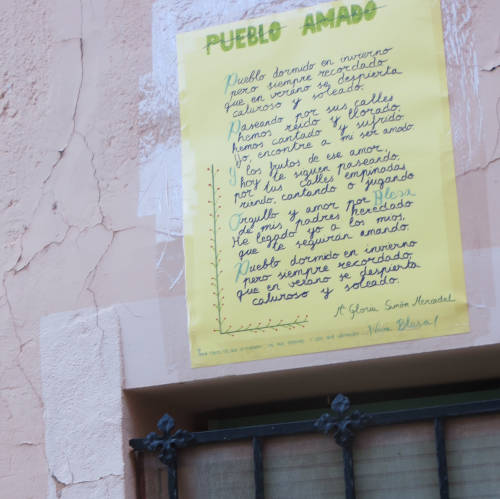 PUEBLO AMADO
Pueblo dormido en invierno
pero siempre recordado
que en verano se despierta
caluroso y soleado.
Paseando por sus calles
hemos reído y llorado
hemos cantado y sufrido
Yo, encontre a mi ser amado
Y los frutos de ese amor,
hoy te siguen paseando
por tus calles empinadas
riendo, cantando o jugando
Orgullo y amor por Blesa
de mis padres heredado
He legado yo a los mios,
que te seguirán amando.
Pueblo dormido en invierno
pero siempre recordado,
que en verano se despierta
caluroso y soleado.
Mª Gloria Simón Mercadal
¡Viva Blesa!